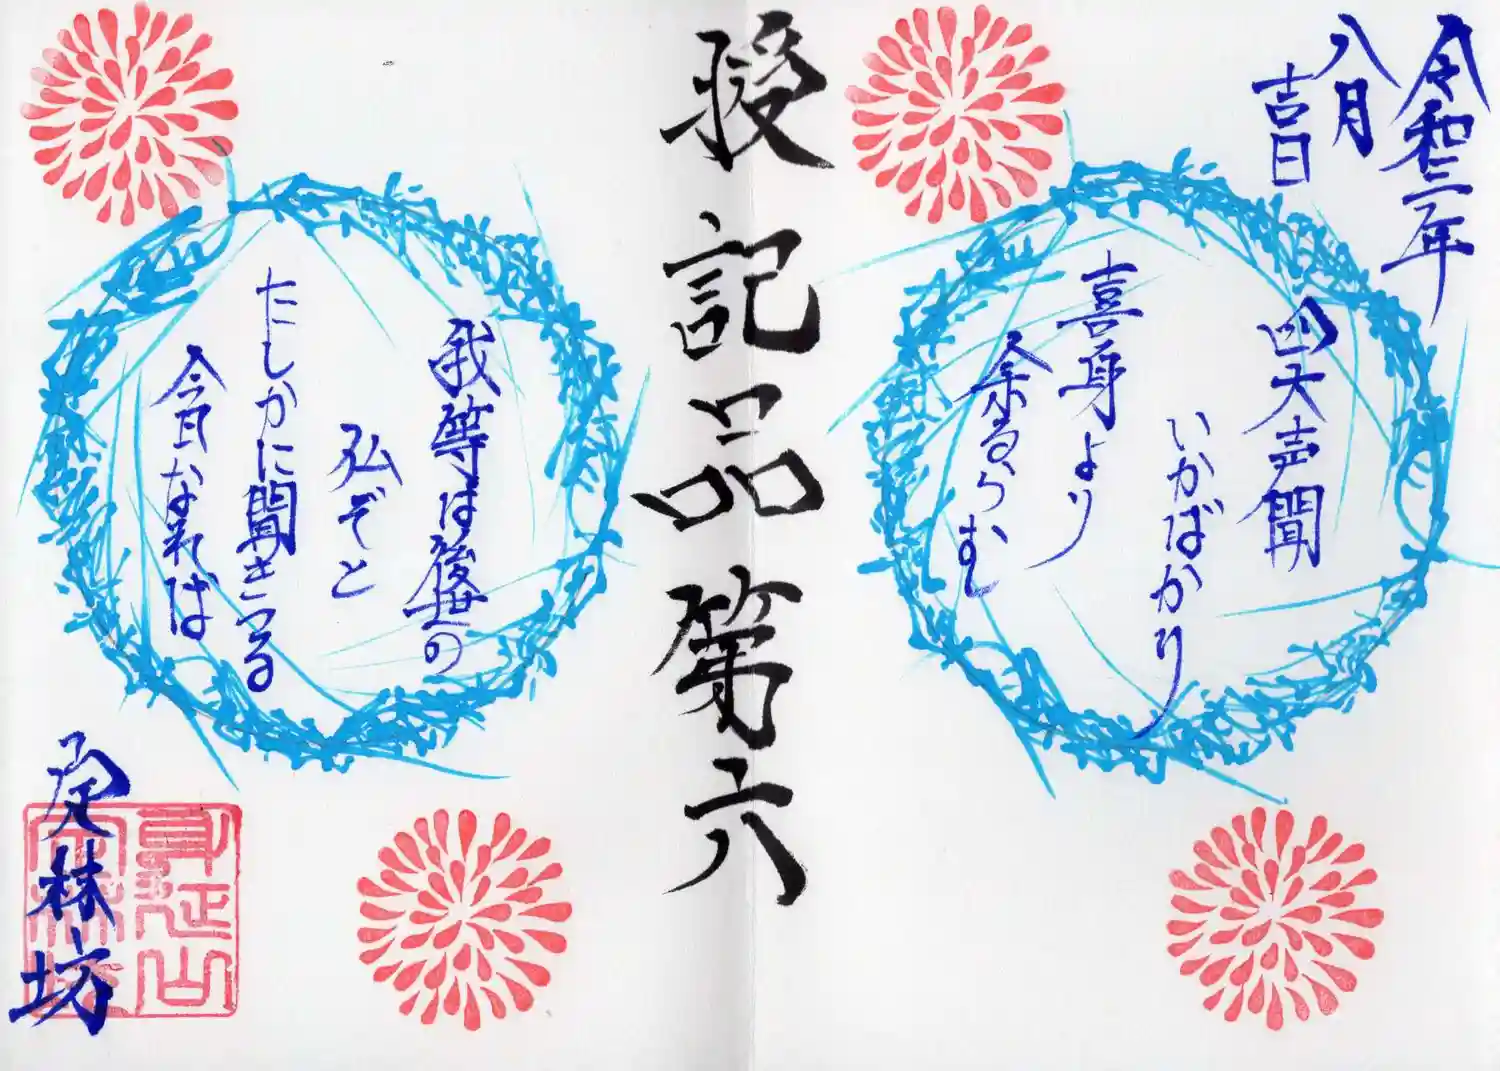 令和三年
八月
吉日
四大声聞
いかばかり
喜身より
余るらむ
授記品第六
我等は後世の
仏ぞと
たしかに聞きつる
今日なれば
定林坊
身延山
定林坊